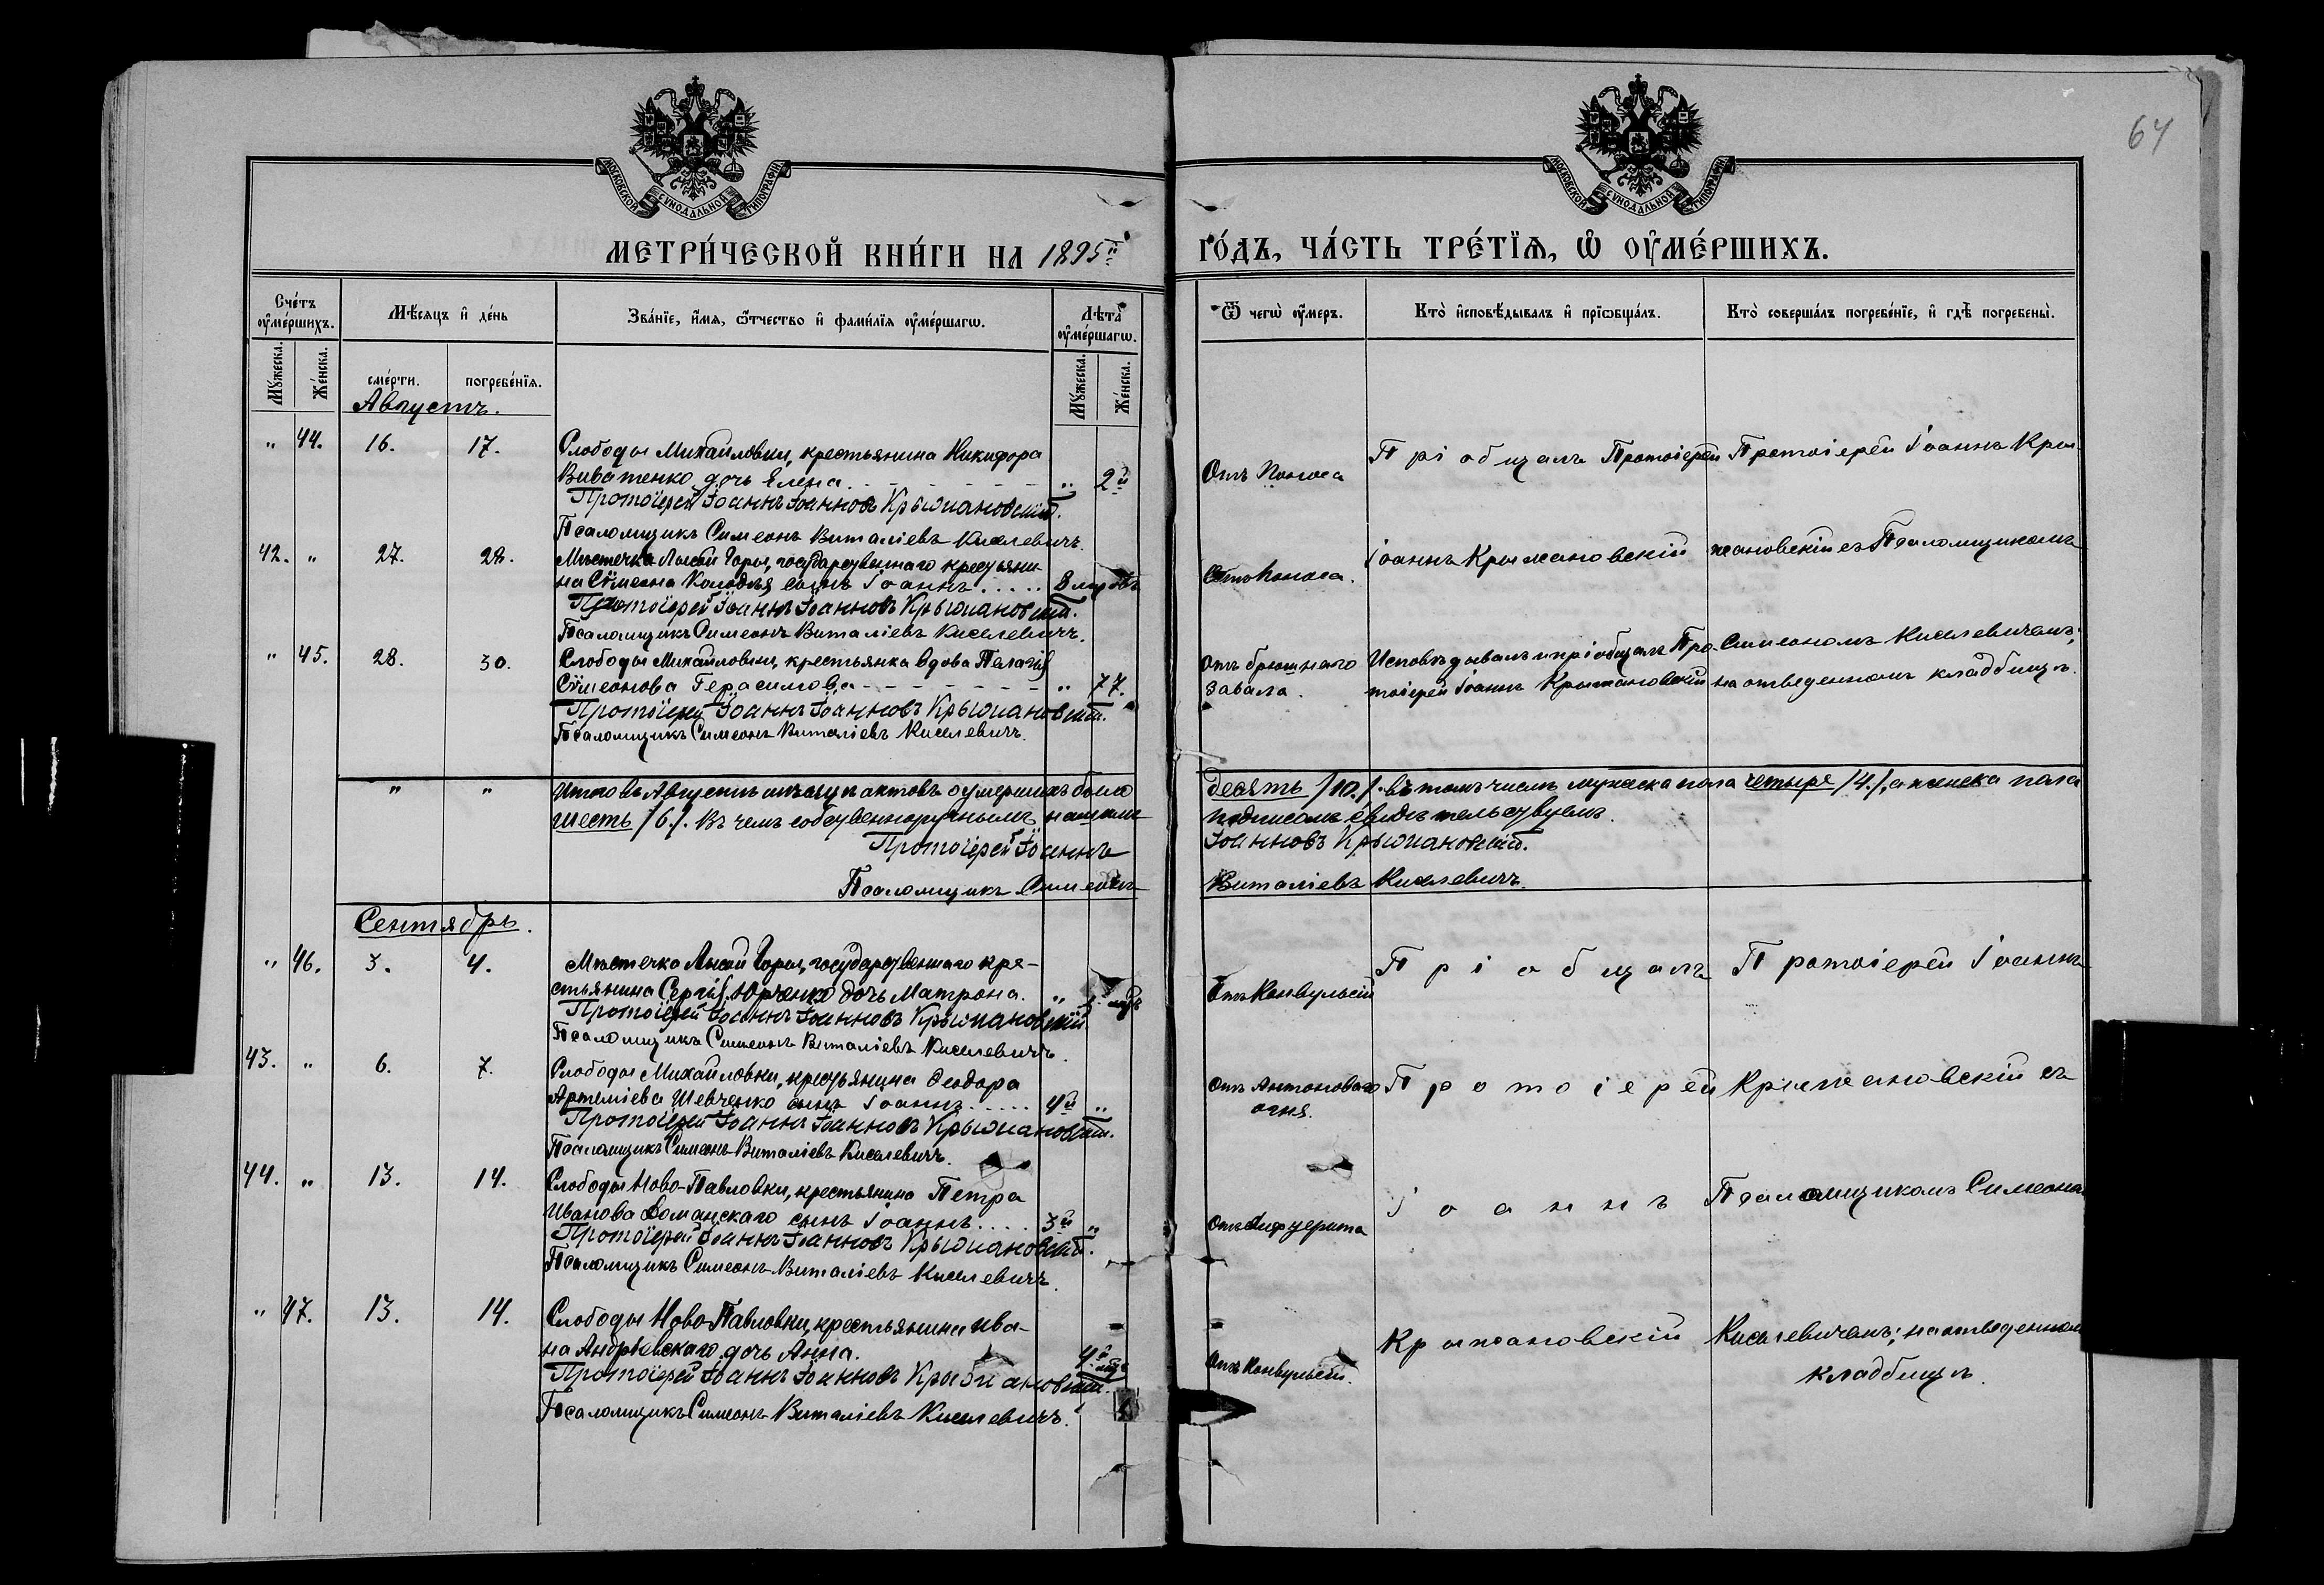 64
МОСКОВСКОЙ СѴНОДАЛЬНОЙ ТИПОГРАФІИ
МОСКОВСКОЙ СѴНОДАЛЬНОЙ ТИПОГРАФІИ
МЕТРИ́ЧЕСКОЙ КНИ́ГИ НА 1895й
ГО́ДЪ, ЧА́СТЬ ТРЕ́ТЇѦ, Ѡ҆ ОУ҆МЕ́РШИХЪ.
Сче́тъ оу҆ме́ршихъ.
Мꙋ́жеска.
Же́нска.
Мѣ́сяцъ и҆ де́нь
сме́рти.
погребе́нїѧ.
Зва́нїе, и҆́мѧ, ѻ҆́тчество и҆ фами́лїѧ оу҆ме́ршагѡ.
Лѣ́та оу҆ме́ршагѡ.
Мꙋ́жеска.
Же́нска.
Ѿ чегѡ̀ оу҆́меръ.
Кто̀ и҆сповѣ́дывалъ и҆ прїѻбща́лъ.
Кто̀ соверша́лъ погребе́нїе, и҆ гдѣ̀ погребены̀.
Августъ.
" 44. 16. 17. Слободы Михайловки, крестьянина Никифора
Виватенко дочь Елена. " 2й
Протоіерей Іоаннъ Іоанновъ Крыжановскій.
Псаломщикъ Симеонъ Виталіевъ Киселевичъ.
Отъ поноса
Пріобщалъ Протоіерей
Протоіерей Іоаннъ Кры-
42. " 27. 28. Мѣстечка Лысой Горы, государственнаго крестьяни-
на Сѵмеона Колодѣя сынъ Іоаннъ.....
Протоіерей Іоаннъ Іоанновъ Крыжановскій.
Псаломщикъ Симеонъ Виталіевъ Киселевичъ.
Отъ поноса.
Іоаннъ Крыжановскій
жановскій съ Псаломщикомъ
" 45. 28. 30. Слободы Михайловки, крестьянка вдова Пелагія
Сѵмеонова Герасимова - - - - - - " 77.
Протоіерей Іоаннъ Іоанновъ Крыжановскій.
Псаломщикъ Симеонъ Виталіевъ Киселевичъ.
Отъ брюшнаго
завала.
Исповѣдывалъ и пріобщалъ Про-
тоіерей Іоаннъ Крыжановскій
Симеономъ Киселевичемъ;
на отведенномъ кладбищѣ.
" " Итого въ Августѣ мѣсяцѣ актовъ о умершихъ было десять /10./. въ томъ числѣ мужеска пола четыре /4./, а женска пола
шесть /6./. Въ чемъ собственноручнымъ нашимъ подписомъ свидѣтельствуемъ.
Протоіерей Іоаннъ Іоанновъ Крыжановскій.
Псаломщикъ Симеонъ Виталіевъ Киселевичъ.
Сентябрь.
" 46. 3. 4. Мѣстечка Лысой Горы, государственнаго кре-
стьянина Сергія Юрченко дочь Матрона. "
Протоіерей Іоаннъ Іоанновъ Крыжановскій.
Псаломщикъ Симеонъ Виталіевъ Киселевичъ.
Отъ Конвульсій
Пріобщалъ
Протоіерей Іоаннъ
43. " 6. 7. Слободы Михайловки, крестьянина Ѳеодора
Артеміева Шевченко сынъ Іоаннъ..... 4й "
Протоіерей Іоаннъ Іоанновъ Крыжановскій.
Псаломщикъ Симеонъ Виталіевъ Киселевичъ.
Отъ Антонового
огня.
Протоіерей
Крыжановскій съ
44. " 13. 14. Слободы Ново-Павловки, крестьянина Петра
Иванова Доманскаго сынъ Іоаннъ.... 3й "
Протоіерей Іоаннъ Іоанновъ Крыжановскій.
Псаломщикъ Симеонъ Виталіевъ Киселевичъ.
Отъ Дифтерита
Іоаннъ
Псаломщикомъ Симеоном
" 47. 13. 14. Слободы Ново-Павловки, крестьянина Ива-
на Андріевскаго дочь Анна.
Протоіерей Іоаннъ Іоанновъ Крыжановскій.
Псаломщикъ Симеонъ Виталіевъ Киселевичъ.
Отъ Конвульсій.
Крыжановскій
Киселевичемъ; на отведенном
кладбищѣ.